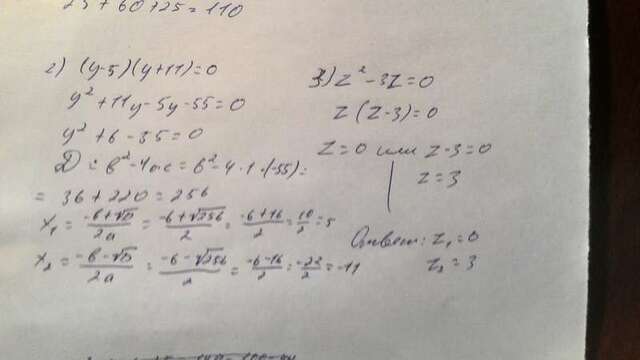 25 + 60 + 25 = 110
2) (y-5)(y+11)=0
y² + 11y - 5y - 55 = 0
y² + 6 - 35 = 0
D = b² - 4ac = 6² - 4·1·(-55) =
= 36 + 220 = 256
x₁ = -b+√D/2a = -6+√256/2 = -6+16/2 = 10/2 = 5
x₂ = -b-√D/2a = -6-√256/2 = -6-16/2 = -22/2 = -11
3) z² - 3z = 0
z(z-3)=0
z=0 или z-3=0
z=3
Ответ: z₁=0
z₂=3